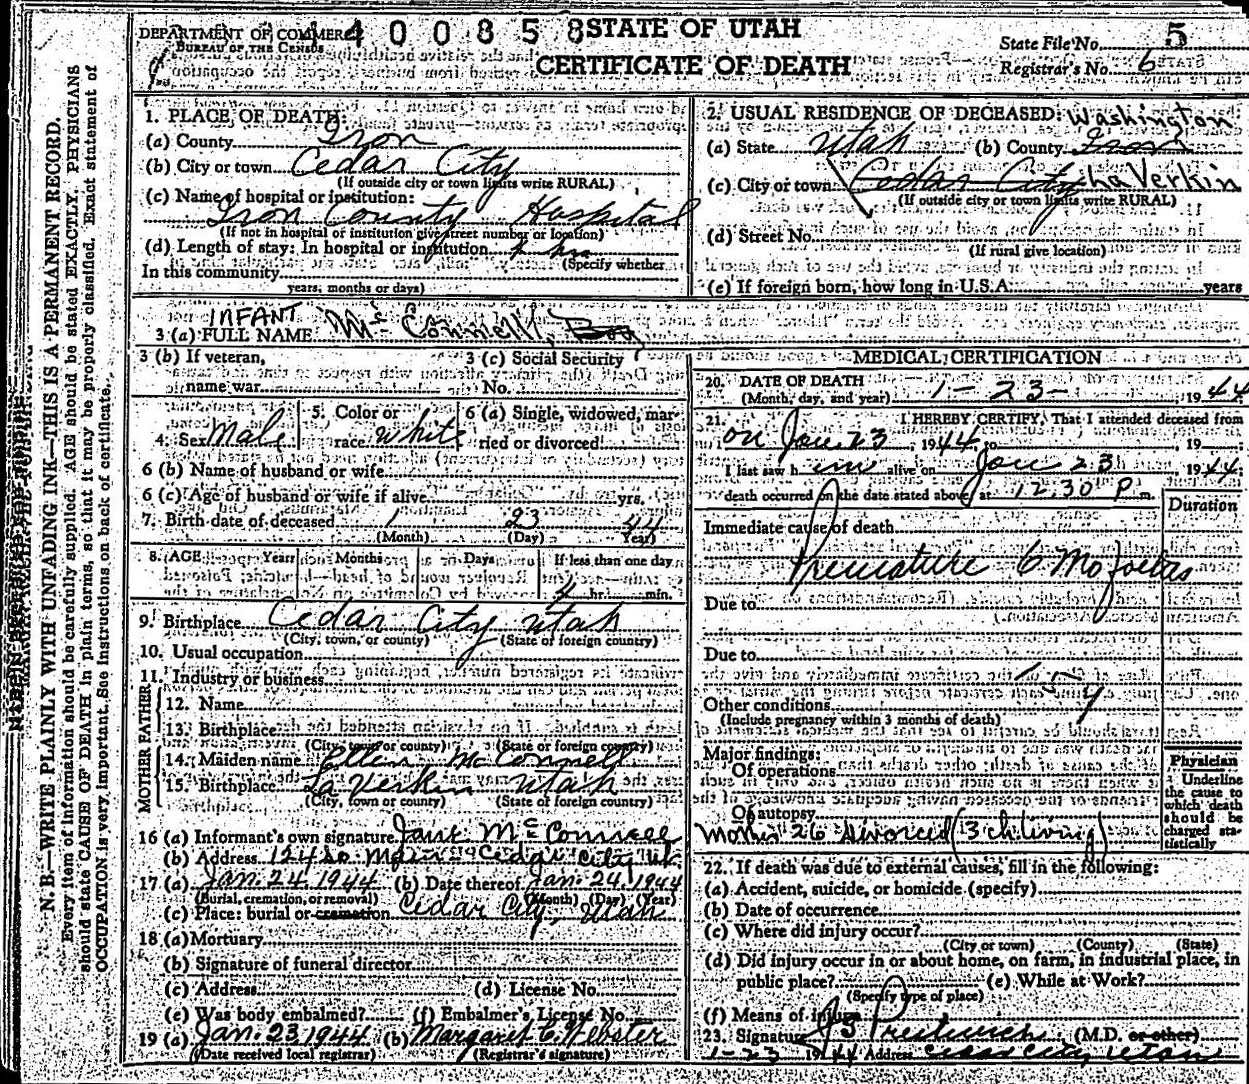 DEPARTMENT OF COMMERCE
BUREAU OF THE CENSUS
4400858
STATE OF UTAH
CERTIFICATE OF DEATH
State File No. 5
Registrar's No. 6
N. B.—WRITE PLAINLY WITH UNFADING INK—THIS IS A PERMANENT RECORD.
Every item of information should be carefully supplied. AGE should be stated EXACTLY. PHYSICIANS
should state CAUSE OF DEATH in plain terms, so that it may be properly classified. Exact statement of
OCCUPATION is very important. See instructions on back of certificate.
1. PLACE OF DEATH:
(a) County Iron
(b) City or town Cedar City
(If outside city or town limits write RURAL)
(c) Name of hospital or institution:
Iron County Hospital
(If not in hospital or institution give street number or location)
(d) Length of stay: In hospital or institution 4 hrs
(Specify whether
In this community
years, months or days)
2. USUAL RESIDENCE OF DECEASED: Washington
(a) State Utah (b) County Iron
(c) City or town Cedar City La Verkin
(If outside city or town limits write RURAL)
(d) Street No.
(If rural give location)
(e) If foreign born, how long in U.S.A. years
INFANT
3 (a) FULL NAME McConnell, Boy
3 (b) If veteran,
name war
3 (c) Social Security
No.
4. Sex Male
5. Color or
race White
6 (a) Single, widowed, mar-
ried or divorced
6 (b) Name of husband or wife
6 (c) Age of husband or wife if alive yrs.
7. Birth date of deceased 1 23 44
(Month) (Day) (Year)
8. AGE Years Months Days If less than one day
4 hr. min.
9. Birthplace Cedar City Utah
(City, town, or county) (State or foreign country)
10. Usual occupation
11. Industry or business
FATHER
12. Name
13. Birthplace
(City, town or county) (State or foreign country)
MOTHER
14. Maiden name Ellen McConnell
15. Birthplace La Verkin Utah
(City, town or county) (State or foreign country)
16 (a) Informant's own signature Jane McConnell
(b) Address 124 So. Main Cedar City Ut.
17 (a) Jan. 24, 1944 (b) Date thereof Jan. 24, 1944
(Burial, cremation, or removal) (Month) (Day) (Year)
(c) Place: burial or cremation Cedar City, Utah
18 (a) Mortuary
(b) Signature of funeral director
(c) Address (d) License No.
(e) Was body embalmed? (f) Embalmer's License No.
19 (a) Jan. 23, 1944 (b) Margaret C. Webster
(Date received local registrar) (Registrar's signature)
MEDICAL CERTIFICATION
20. DATE OF DEATH
(Month, day, and year) 1-23-, 1944
21. I HEREBY CERTIFY, That I attended deceased from
on Jan 23, 1944, to , 19
I last saw him alive on Jan 23, 1944;
death occurred on the date stated above, at 12.30 P m.
Duration
Immediate cause of death
Premature 6 Mo foetus
Due to
Due to
159
Other conditions
(Include pregnancy within 3 months of death)
Major findings:
Of operations
Of autopsy
Mother 26 Divorced (3 ch living)
Physician
Underline
the cause to
which death
should be
charged sta-
tistically
22. If death was due to external causes, fill in the following:
(a) Accident, suicide, or homicide (specify)
(b) Date of occurrence
(c) Where did injury occur?
(City or town) (County) (State)
(d) Did injury occur in or about home, on farm, in industrial place, in
public place? (e) While at Work?
(Specify type of place)
(f) Means of injury
23. Signature J S Prestwich (M.D. or other)
1-23 1944 Address Cedar City Utah